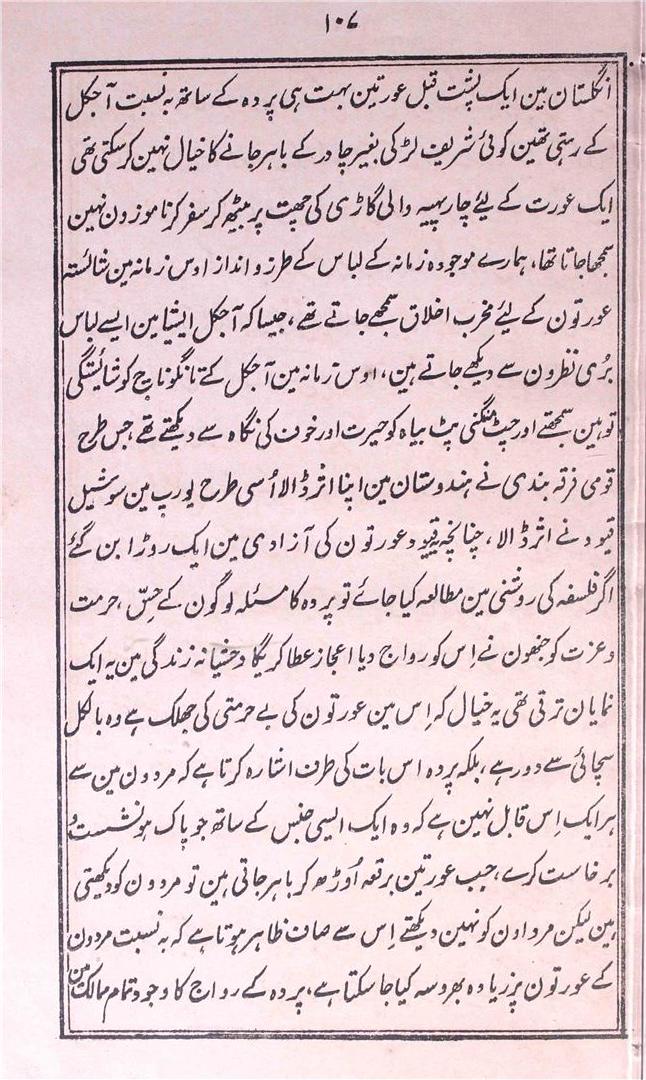 ۱۰۷
انگلستان مین ایک پشت قبل عورتین بہت ہی پردہ کے ساتھ بہ نسبت آجکل
کے رہتی تھین کوئی شریف لڑکی بغیر چادر کے باہر جانے کا خیال نہین کرسکتی تھی
ایک عورت کے لیئے چار پہیہ والی گاڑی کی چھت پر بیٹھ کر سفر کرنا موزون نہین
سمجھا جاتا تھا، ہمارے موجودہ زمانہ کے لباس کے طرز و انداز اوس زمانہ مین شائستہ
عورتون کے لیئے مخرب اخلاق سمجھے جاتے تھے، جیسا کہ آجکل ایشیا مین ایسے لباس
بُری نظرون سے دیکھے جاتے ہین، اوس زمانہ مین آجکل کے ٹانگو ناچ کو شائیستگی
توہین سمجھتے اور چٹ منگنی پٹ بیاہ کو حیرت اور خون کی نگاہ سے دیکھتے تھے جس طرح
قومی فرقہ بندی نے ہندوستان مین اپنا اثر ڈالا اُسی طرح یورپ مین سوشیل
قیود نے اثر ڈالا، چنانچہ یہ قیود عورتون کی آزادی مین ایک روڑا بن گئے
اگر فلسفہ کی روشنی مین مطالعہ کیا جائے تو پردہ کا مسئلہ لوگون کے حِسّ، حرمت
و عزت کو جنھون نے اِس کو رواج دیا اعجاز عطا کریگا وحشیانہ زندگی مین یہ ایک
نمایان ترقی تھی یہ خیال کہ اِس مین عورتون کی بے حرمتی کی جھلک ہے وہ بالکل
سچائی سے دور ہے، بلکہ پردہ اس بات کی طرف اشارہ کرتا ہے کہ مردون مین سے
ہر ایک اِس قابل نہین ہے کہ وہ ایک ایسی جنس کے ساتھ جو پاک ہو نشست و
برخاست کرے، جب عورتین برقعہ اُوڑھ کر باہر جاتی ہین تو مردون کو دیکھتی
ہین لیکن مرد اون کو نہین دیکھتے اِس سے صاف ظاہر ہوتا ہے کہ بہ نسبت مردون
کے عورتون پر زیادہ بھروسہ کیا جاسکتا ہے، پردہ کے رواج کا وجود تمام ممالک مین